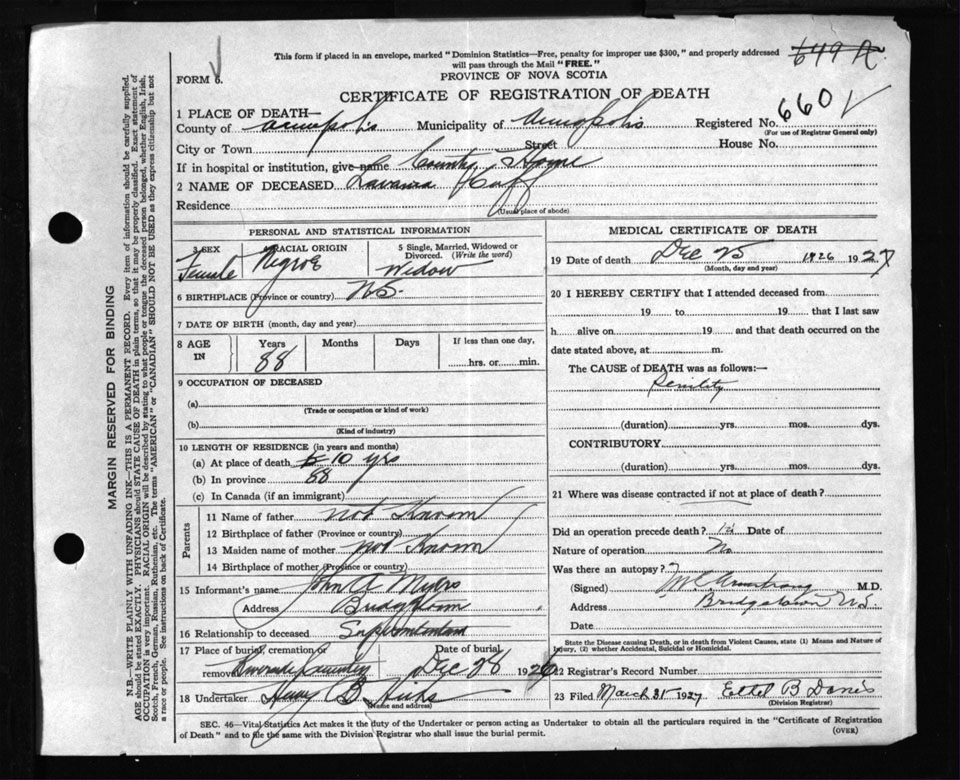 This form if placed in an envelope, marked "Dominion Statistics—Free, penalty for improper use $300," and properly addressed
will pass through the Mail "FREE."
649 A.
FORM 6.
PROVINCE OF NOVA SCOTIA
CERTIFICATE OF REGISTRATION OF DEATH
6601
1 PLACE OF DEATH—
County of Annapolis Municipality of Annapolis Registered No.
(For use of Registrar General only)
City or Town Street House No.
If in hospital or institution, give name County Home
2 NAME OF DECEASED Cuff
Residence
(Usual place of abode)
PERSONAL AND STATISTICAL INFORMATION
3 SEX Female
4 RACIAL ORIGIN Negroe
5 Single, Married, Widowed or Divorced. (Write the word) Widow
6 BIRTHPLACE (Province or country) N.S.
7 DATE OF BIRTH (month, day and year)
8 AGE IN Years 88 Months Days If less than one day, hrs. or min.
9 OCCUPATION OF DECEASED
(a)
(Trade or occupation or kind of work)
(b)
(Kind of industry)
10 LENGTH OF RESIDENCE (in years and months)
(a) At place of death 10 yrs
(b) In province 88
(c) In Canada (if an immigrant)
Parents
11 Name of father not Known
12 Birthplace of father (Province or country)
13 Maiden name of mother not Known
14 Birthplace of mother (Province or country)
15 Informant's name John A Myers
Address Bridgetown
16 Relationship to deceased Superintendent
17 Place of burial, cremation or removal Cemetery
Date of burial Dec 28 1926
18 Undertaker Hicks
(Name and address)
MEDICAL CERTIFICATE OF DEATH
19 Date of death Dec 25 1926 1927
(Month, day and year)
20 I HEREBY CERTIFY that I attended deceased from
19 to 19 that I last saw
h alive on 19 and that death occurred on
date stated above, at m.
The CAUSE of DEATH was as follows:—
Senility
(duration) yrs. mos. dys.
CONTRIBUTORY
(duration) yrs. mos. dys.
21 Where was disease contracted if not at place of death?
Did an operation precede death? No Date of
Nature of operation No
Was there an autopsy?
(Signed) Armstrong M.D.
Address Bridgetown N.S.
Date
State the Disease causing Death, or in death from Violent Causes, state (1) Means and Nature of
Injury, (2) whether Accidental, Suicidal or Homicidal.
22 Registrar's Record Number
23 Filed March 31 1927 Ethel B Davis
(Division Registrar)
SEC. 46—Vital Statistics Act makes it the duty of the Undertaker or person acting as Undertaker to obtain all the particulars required in the "Certificate of Registration
of Death" and to file the same with the Division Registrar who shall issue the burial permit.
(OVER)
MARGIN RESERVED FOR BINDING
N.B.—WRITE PLAINLY WITH UNFADING INK—THIS IS A PERMANENT RECORD. Every item of information should be carefully supplied.
AGE should be stated EXACTLY. PHYSICIANS should STATE CAUSE OF DEATH in plain terms, so that it may be properly classified. Exact statement of
OCCUPATION is very important. RACIAL ORIGIN will be described by stating to what people or tongue the deceased person belonged, whether English, Irish,
Scotch, French, German, Russian, Ruthenian, etc. The terms "AMERICAN" or "CANADIAN" SHOULD NOT BE USED as they express citizenship but not
a race or people. See instructions on back of Certificate.